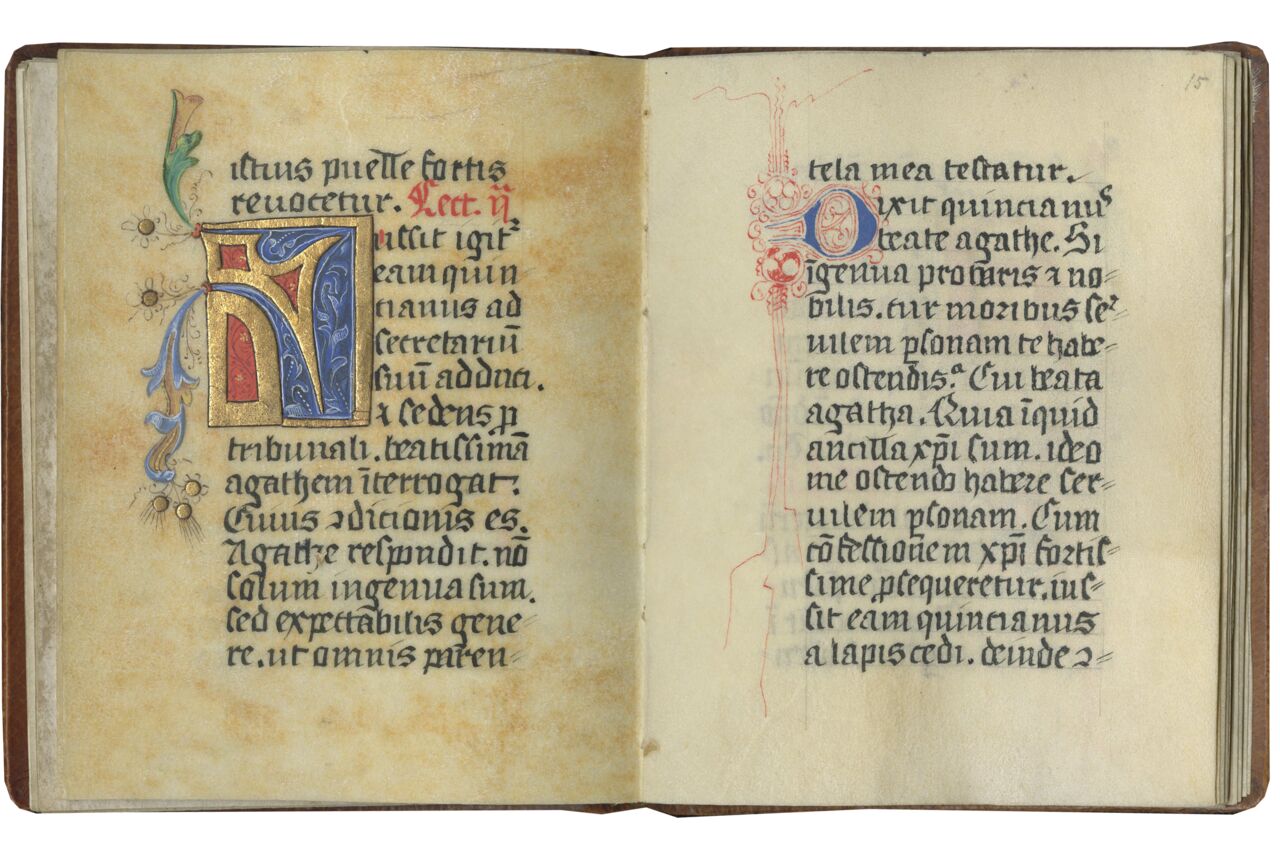 istius puelle fortis
reuocetur. Lect. ij
ussit igit᷑
eam quin=
cianus ad
secretariū
suū adduci.
⁊ sedens ꝑ
tribunali. beatissimā
agathem īterrogat᷑.
Cuius ↄdicionis es.
Agathe respondit. nō
solum ingenua sum.
sed expectabilis gene=
re. ut omnis paren=
15
tela mea testatur.
Dixit quincianus
beate agathe. Si
īgenua procaris ⁊ no=
bilis. cur moribus ser=
uilem ꝑsonam te habe=
re ostendis. Cui beata
agatha. Quia īquid
ancilla xp̄i sum. ideo
me ostendo habere ser=
uilem ꝑsonam. Cum
cōfessionem xp̄i fortis=
sime ꝑsequeretur. ius=
sit eam quincianus
a lapis cedi. deinde ↄ=